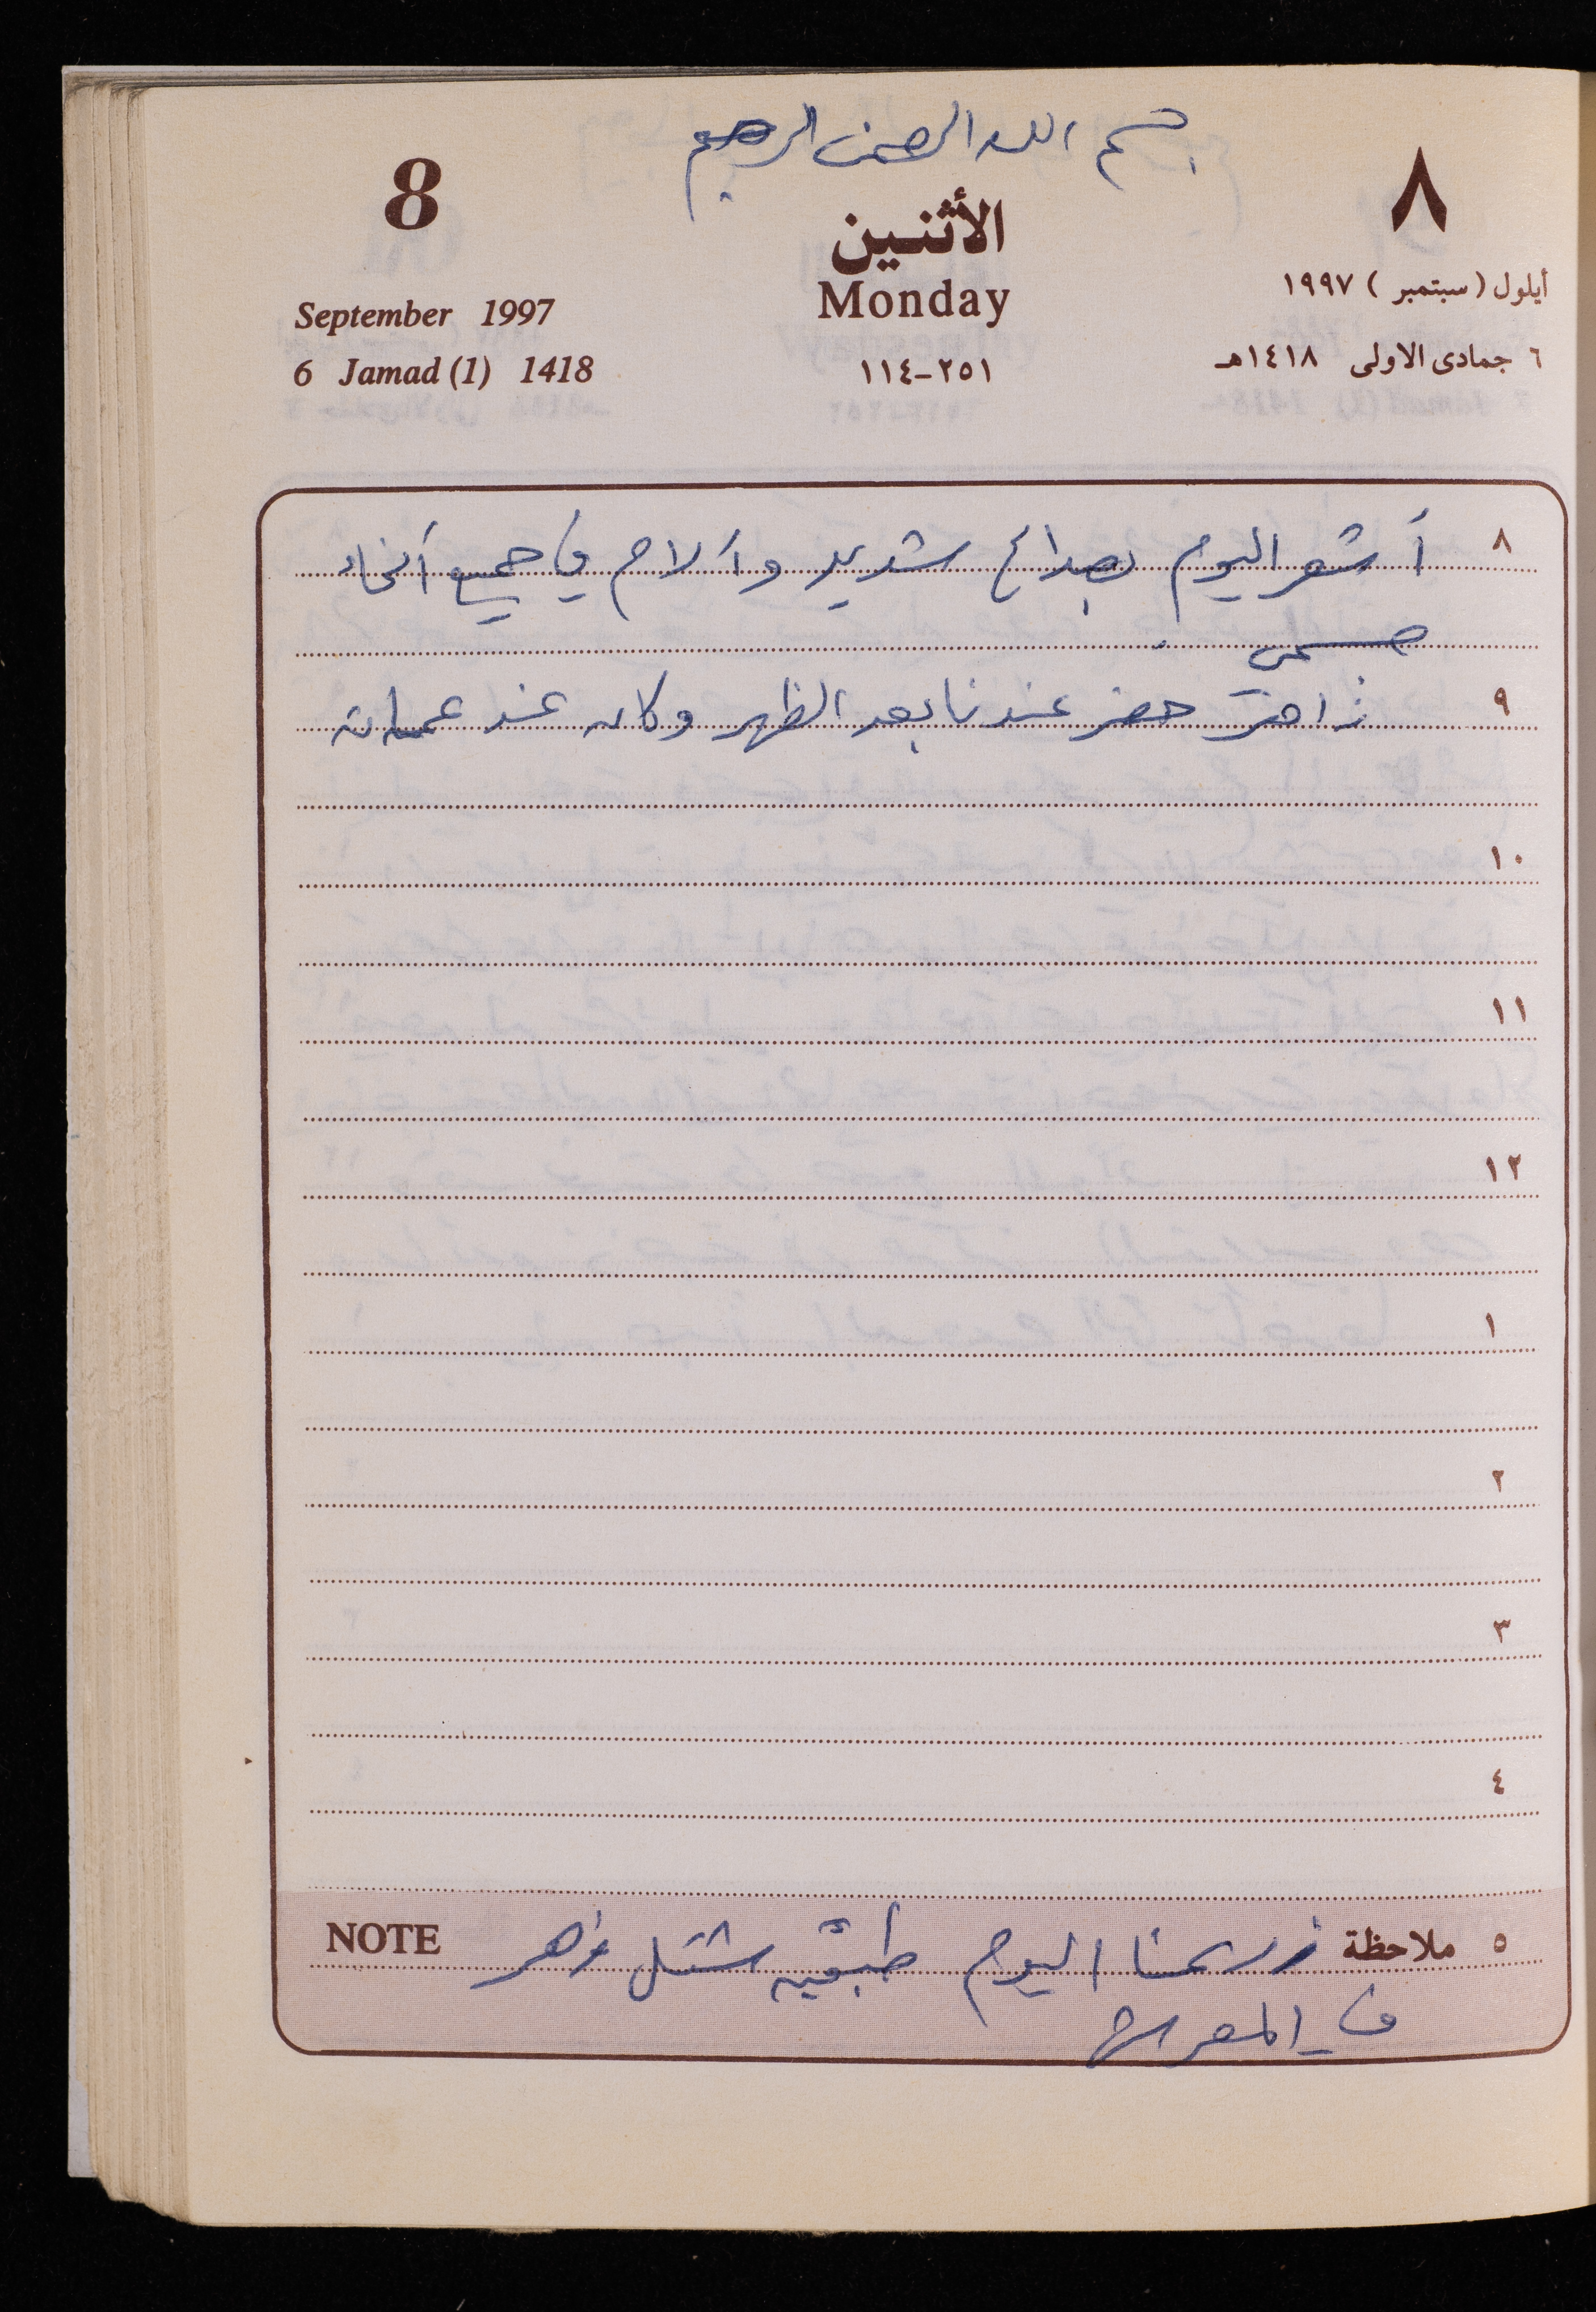 بسم الله الرحمن الرحيم
8
٨
الأثنين
Monday
٢٥١-١١٤
September 1997
6 Jamad (1) 1418
أيلول (سبتمبر) ١٩٩٧
٦ جمادى الاولى ١٤١٨هـ
٨ أشعر اليوم بصداع شديد وآلام في جميع أنحاء
جسمي
٩ زاهر حضر عندنا بعد الظهر وكان عند عمات
١٠
١١
١٢
١
٢
٣
٤
٥ ملاحظة زرعنا اليوم شتل NOTE
في